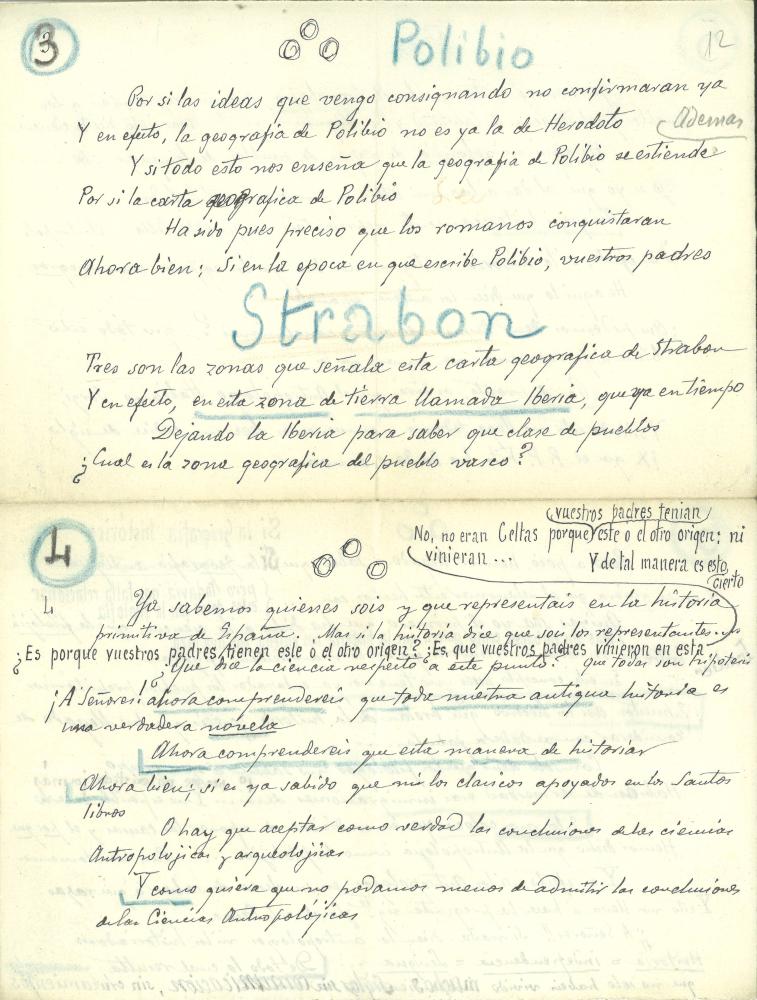 3
Polibio
12
Por si las ideas que vengo consignando no confirmaran ya
Y en efecto, la geografia de Polibio no es ya la de Herodoto
Ademas
Y si todo esto nos enseña que la geografia de Polibio se estiende
Por si la carta geografica de Polibio
Ha sido pues preciso que los romanos conquistaran
Ahora bien; Si en la epoca en que escribe Polibio, vuestros padres
Strabon
Tres son las zonas que señala esta carta geografica de Strabon
Y en efecto, en esta zona de tierra llamada Iberia, que ya en tiempo
Dejando la Iberia para saber que clase de pueblos
¿Cual es la zona geografica del pueblo vasco?
4
vuestros padres tenian
No, no eran Celtas porque este ó el otro origen; ni
vinieran ...
Y de tal manera es esto
cierto
4
Ya sabemos quienes sois y que representais en la historia
primitiva de España. Mas si la historia dice que sois los representantes...
¿Es porque vuestros padres tienen este ó el otro origen? ¿Es, que vuestros padres vinieron en esta
¿Que dice la ciencia respecto a este punto? que todas son hipotesis
¡A Señores! ahora comprendereis que toda nuestra antigua historia es
una verdadera novela
Ahora comprendereis que esta manera de historiar
Ahora bien; si es ya sabido que ni los clasicos apoyados en los Santos
libros
O hay que aceptar como verdad las conclusiones de las ciencias
Antropolojicas y arqueolojicas
Y como quiera que no podamos menos de admitir las conclusiones
de las Ciencias Antropolójicas